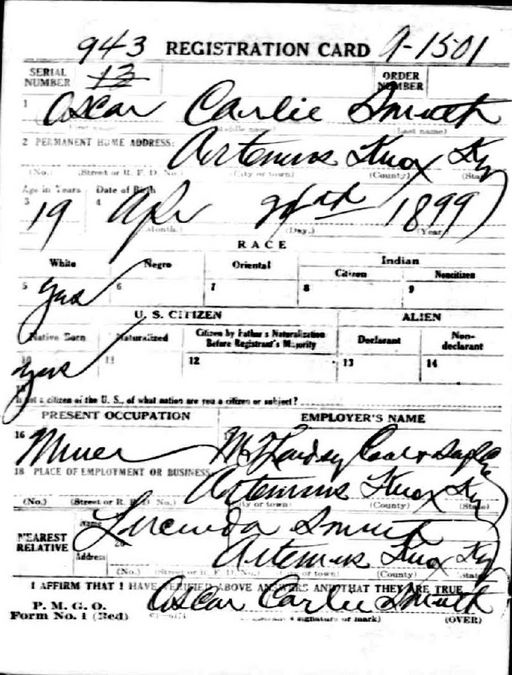 943 REGISTRATION CARD A-1501
SERIAL NUMBER 13 ORDER NUMBER
1 Oscar Carlie Smith
(Last name)
2 PERMANENT HOME ADDRESS: Artemus Knox Ky
(No.) (Street or R. F. D. No.) (City or town) (County) (State)
Age in Years Date of Birth
3 19 4 Apr 24th 1899
(Month.) (Day.) (Year)
RACE
White Negro Oriental Indian
Citizen Noncitizen
5 yes 6 7 8 9
U. S. CITIZEN ALIEN
Native Born Naturalized Citizen by Father's Naturalization Before Registrant's Majority Declarant Non-declarant
10 yes 11 12 13 14
15
If not a citizen of the U. S., of what nation are you a citizen or subject?
PRESENT OCCUPATION EMPLOYER'S NAME
16 Miner
18 PLACE OF EMPLOYMENT OR BUSINESS: Artemus Knox Ky
(No.) (Street or R. F. D. No.) (City or town) (County) (State)
NEAREST RELATIVE Name Lucinda Smith
Address 20 Artemus Knox Ky
(No.) (Street or R. F. D. No.) (City or town) (County) (State)
I AFFIRM THAT I HAVE VERIFIED ABOVE ANSWERS AND THAT THEY ARE TRUE
P. M. G. O.
Form No. 1 (Red) Oscar Carlie Smith
(Registrant's signature or mark) (OVER)